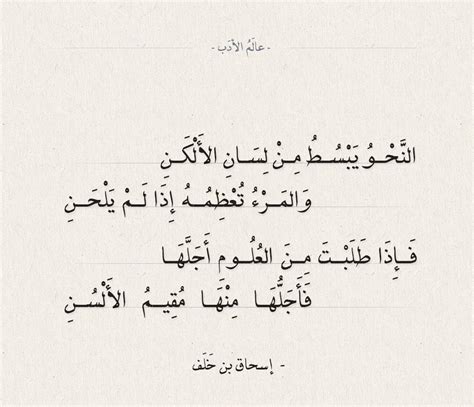 - عالَمُ الأدَب -
النَّحْوُ يَبْسُطُ مِنْ لِسَانِ الأَلْكَنِ
وَالمَرْءُ تُعْظِمُهُ إِذَا لَمْ يَلْحَنِ
فَإِذَا طَلَبْتَ مِنَ العُلُومِ أَجَلَّهَا
فَأَجَلُّهَا مِنْهَا مُقِيمُ الأَلْسُنِ
- إسحاق بن خَلَف